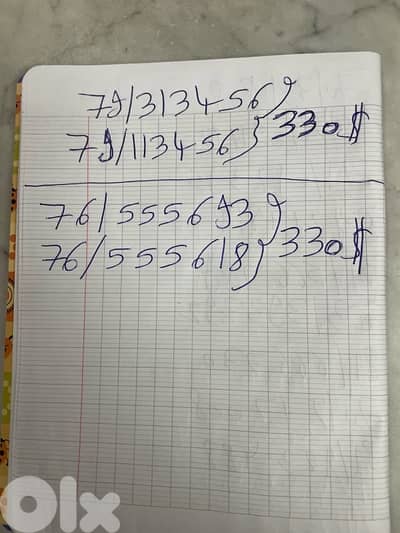 79/313456
79/113456 } 330$
76/555693
76/555618 } 330$
olx